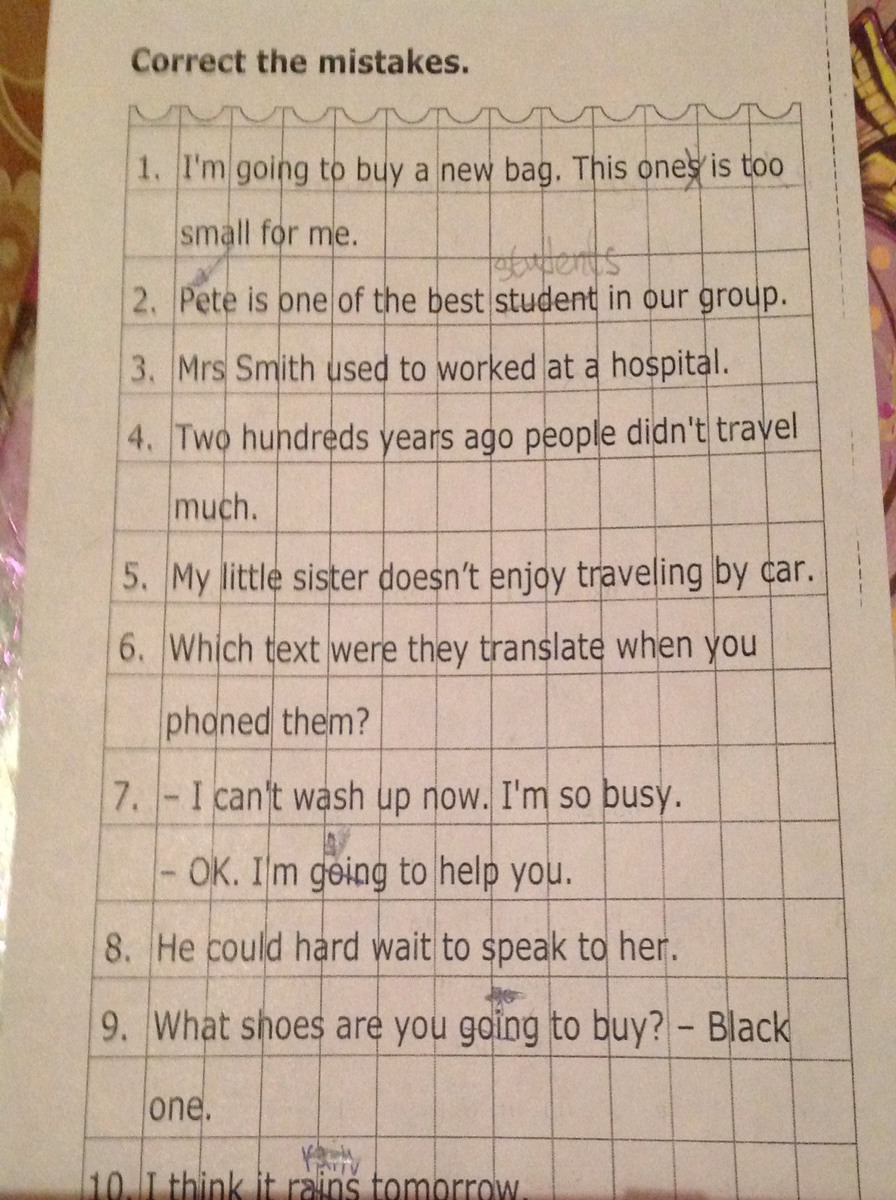 Correct the mistakes.
1. I'm going to buy a new bag. This ones is too
small for me.
students
2. Pete is one of the best student in our group.
3. Mrs Smith used to worked at a hospital.
4. Two hundreds years ago people didn't travel
much.
5. My little sister doesn't enjoy traveling by car.
6. Which text were they translate when you
phoned them?
7. – I can't wash up now. I'm so busy.
– OK. I'm going to help you.
8. He could hard wait to speak to her.
9. What shoes are you going to buy? – Black
one.
10. I think it rains tomorrow.